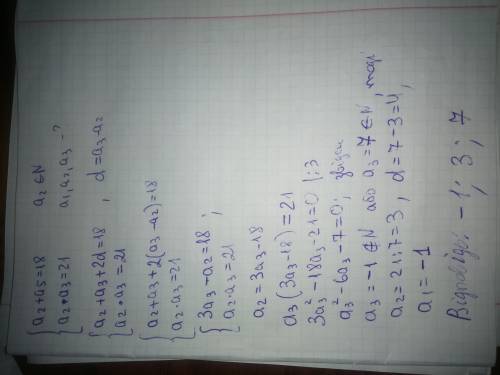 {a₂+a₅=18 a₂∈N
{a₂*a₃=21 a₁,a₂,a₃ -?
{a₂+a₃+2d=18, d=a₃-a₂
{a₂*a₃=21
{a₂+a₃+2(a₃-a₂)=18
{a₂·a₃=21
{3a₃-a₂=18;
{a₂·a₃=21
a₂=3a₃-18
a₃(3a₃-18)=21
3a₃²-18a₃-21=0 |:3
a₃²-6a₃-7=0; звідси
a₃=-1∉N або a₃=7∈N, тоді
a₂=21:7=3, d=7-3=4,
a₁=-1
Відповідь: -1; 3; 7